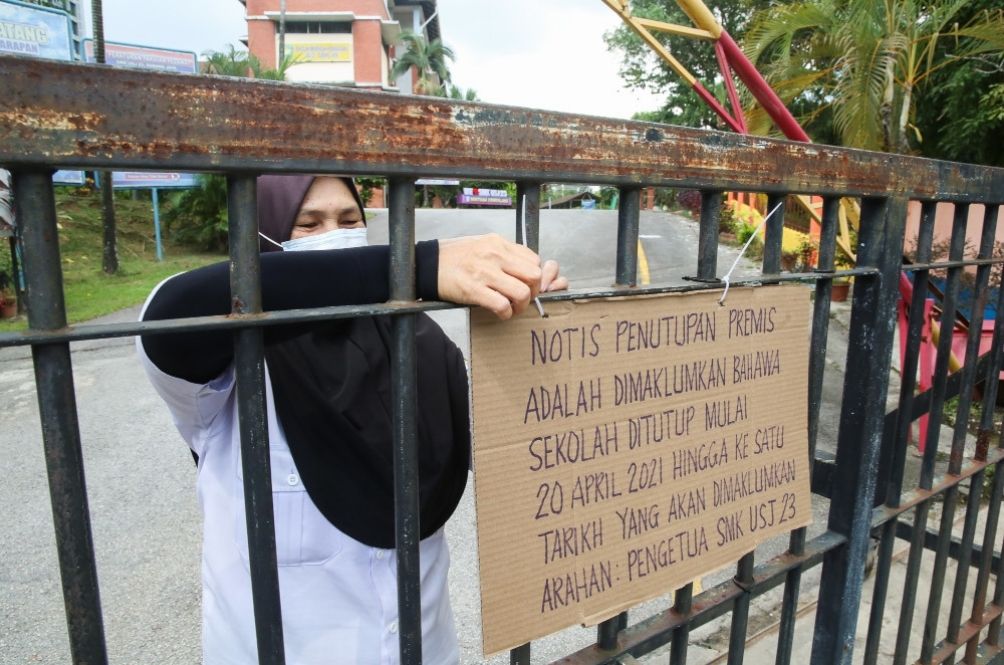 ATANG
ARAPAN
NOTIS PENUTUPAN PREMIS
ADALAH DIMAKLUMKAN BAHAWA
SEKOLAH DITUTUP MULAI
20 APRIL 2021 HINGGA KE SATU
TARIKH YANG AKAN DIMAKLUMKAN
ARAHAN: PENGETUA SMK USJ 23